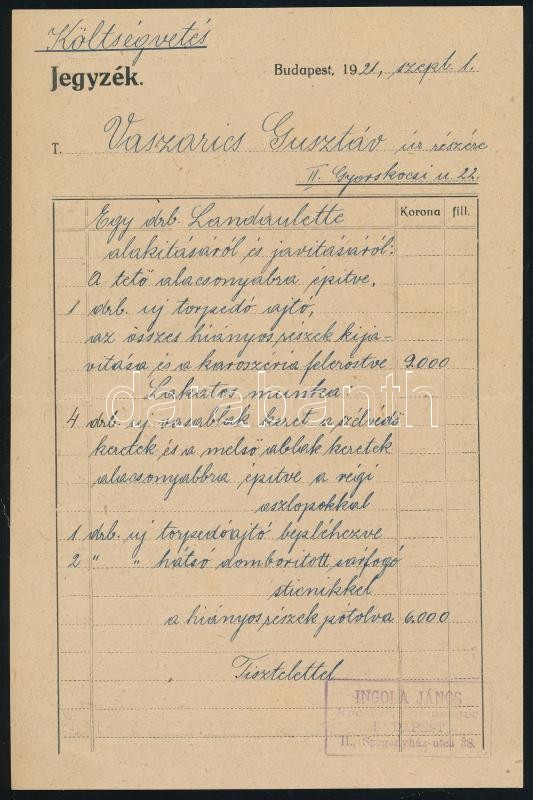 Költségvetés
Jegyzék.
Budapest, 1921, szept. 1.
T. Vaszarics Gusztáv úr részére
II. Gyorskocsi u. 22.
Korona fill.
Egy drb. Landaulette
alakitásáról és javitásáról:
A tető alacsonyabra épitve,
1 drb. uj torpedó ajtó,
az összes hiányos részek kija-
vitása és a karoszéria felerostve 9.000
Lakatos munka:
4 drb. uj vasablak keret a szélvédő
keretek és a melső ablak keretek
alacsonyabbra épitve a régi
oszlopokkal
1 drb. uj torpedóajtó bepléhezve
2 " " hátsó domboritott sárfogó
sticnikkel
a hiányos részek pótolva 6.000
Tisztelettel
INGOLA JÁNOS
BUDAPEST
II., Szegényház-utca 38.
darabanth